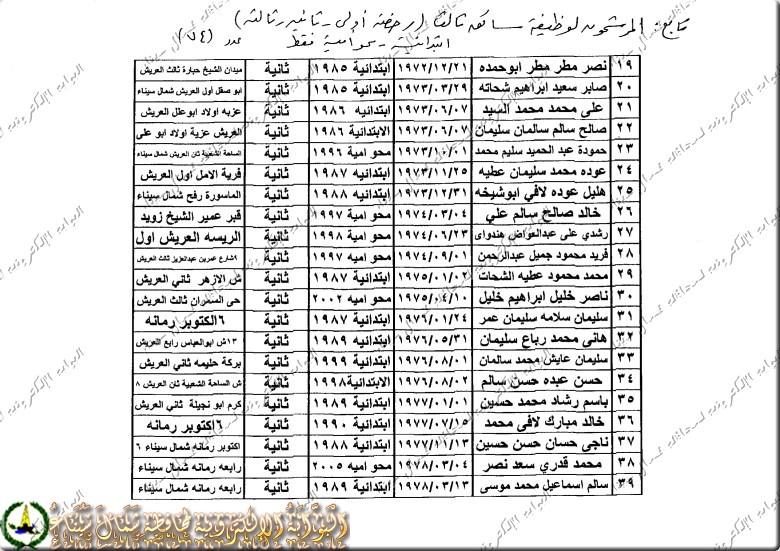 تابع : المرشحون لوظيفة سائق ثالث ( رخصة أولى - ثانية - ثالثة )
ابتدائية - محو أمية فقط عدد ( ٧٤ )
١٩ نصر مطر مطر ابوحمده ١٩٧٢/١٢/٢١ ابتدائية ١٩٨٥ ثانية ميدان الشيخ حبارة ثالث العريش
٢٠ صابر سعيد ابراهيم شحاته ١٩٧٣/٠٣/٢٩ ابتدائية ١٩٨٥ ثانية ابو صقل أول العريش شمال سيناء
٢١ على محمد محمد السيد ١٩٧٣/٠٦/٠٧ ابتدائيه ١٩٨٦ ثانية عزبه اولاد ابوعلل العريش
٢٢ صالح سالم سالمان سليمان ١٩٧٣/٠٦/٠٧ الابتدائية ١٩٨٦ ثانية العريش عزبة اولاد ابو على
٢٣ حمودة عبد الحميد سليم محمد ١٩٧٣/١٠/٠١ محو امية ١٩٩٦ ثانية الساحة الشعبية ثان العريش شمال سيناء
٢٤ عوده محمد سليمان عطيه ١٩٧٣/١١/٢٥ ابتدائيه ١٩٨٧ ثانية قرية الامل اول العريش
٢٥ هليل عوده لافي ابوشيخه ١٩٧٣/١٢/٣١ ابتدائيه ١٩٨٨ ثانية الماسورة رفح شمال سيناء
٢٦ خالد صالح سالم علي ١٩٧٤/٠٣/٠٤ محو امية ١٩٩٧ ثانية قبر عمير الشيخ زويد
٢٧ رشدي على عبدالعواض هنداوى ١٩٧٤/٠٦/٢٣ محو امية ١٩٩٨ ثانية الريسه العريش اول
٢٨ فريد محمود جميل عبدالرحمن ١٩٧٤/٠٩/٠١ محو امية ١٩٩٧ ثانية ٩شارع عمربن عبدالعزيز ثالث العريش
٢٩ محمد محمود عطيه الشحات ١٩٧٥/٠١/٠٢ ابتدائية ١٩٨٧ ثانية ش الازهر ثاني العريش
٣٠ ناصر خليل ابراهيم خليل ١٩٧٥/٠٤/١٠ محو اميه ٢٠٠٢ ثانية حى السمران ثالث العريش
٣١ سليمان سلامه سليمان عمر ١٩٧٦/٠١/٢٤ ابتدائية ١٩٨٧ ثانية ٦اكتوبر رمانه
٣٢ هاني محمد رباع سليمان ١٩٧٦/٠٥/٣١ ابتدائية ١٩٨٩ ثانية ١٣ش ابوالعباس رابع العريش
٣٣ سليمان عايش محمد سالمان ١٩٧٦/٠٨/٠١ ابتدائية ١٩٩٩ ثانية بركة حليمه ثاني العريش
٣٤ حسن عبده حسن سالم ١٩٧٦/٠٨/٠٢ الابتدائية ١٩٩٨ ثانية ش الساحة الشعبية ثان العريش ٨
٣٥ باسم رشاد محمد حسين ١٩٧٧/٠١/٠١ ابتدائية ١٩٨٩ ثانية كرم ابو نجيلة ثاني العريش
٣٦ خالد مبارك لافى محمد ١٩٧٧/٠٧/١٥ ابتدائية ١٩٩٠ ثانية ٦اكتوبر رمانه
٣٧ ناجى حسان حسن حسين ١٩٧٧/١١/١٣ ابتدائية ١٩٨٨ ثانية اكتوبر رمانه شمال سيناء ٦
٣٨ محمد قدري سعد نصر ١٩٧٨/٠٣/٠٤ محو اميه ٢٠٠٥ ثانية رابعه رمانه شمال سيناء
٣٩ سالم اسماعيل محمد موسى ١٩٧٨/٠٣/١٣ ابتدائية ١٩٨٩ ثانية رابعه رمانه شمال سيناء
البوابة الإلكترونية لمحافظة شمال سيناء